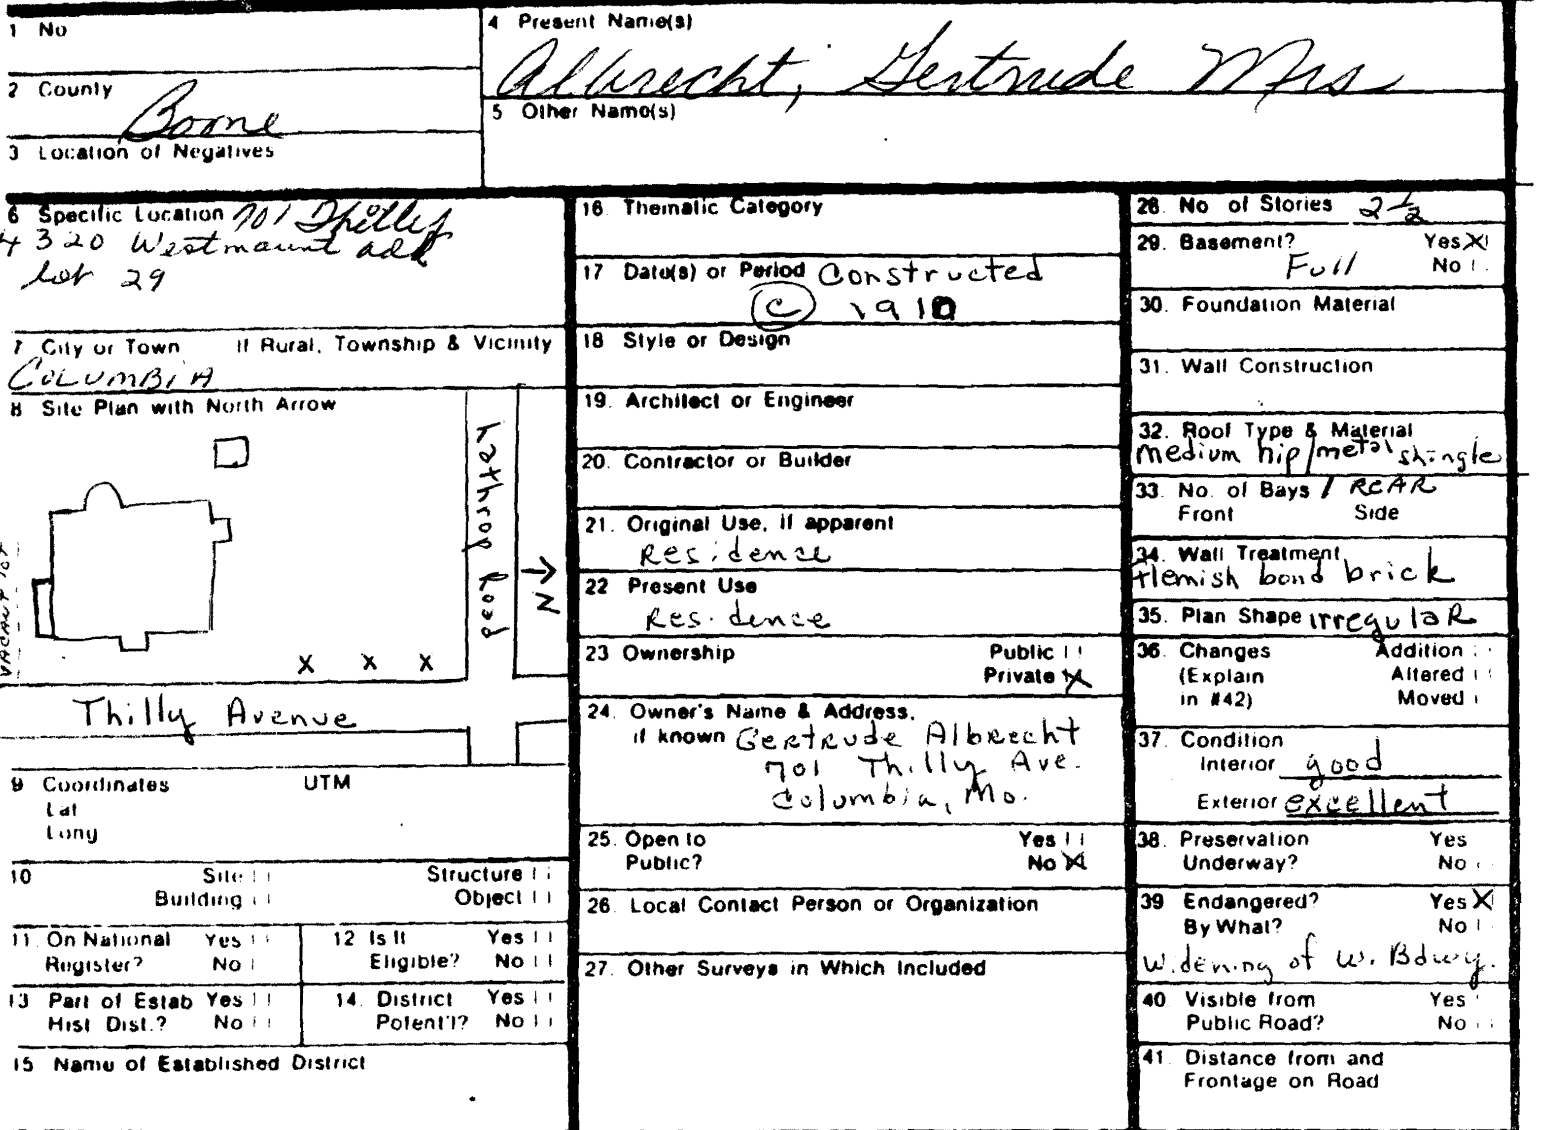 1 No
2 County
Boone
3 Location of Negatives
4 Present Name(s)
Albrecht, Gertrude Mrs
5 Other Name(s)
6 Specific Location 701 Thilly
4320 Westmount add
lot 29
7 City or Town If Rural, Township & Vicinity
COLUMBIA
8 Site Plan with North Arrow
Lathrop Road
N
VACANT LOT
X X X
Thilly Avenue
9 Coordinates UTM
Lat
Long
10 Site Structure
Building Object
11. On National Yes
Register? No
12 Is It Yes
Eligible? No
13 Part of Estab Yes
Hist Dist.? No
14. District Yes
Potent'l? No
15 Name of Established District
16. Thematic Category
17 Date(s) or Period Constructed
C 1910
18 Style or Design
19. Architect or Engineer
20. Contractor or Builder
21. Original Use, if apparent
Residence
22 Present Use
Residence
23 Ownership Public
Private X
24. Owner's Name & Address,
if known Gertrude Albrecht
701 Thilly Ave.
Columbia, Mo.
25. Open to Yes
Public? No X
26. Local Contact Person or Organization
27. Other Surveys in Which Included
28. No of Stories 2 1/2
29. Basement? Yes X
Full No
30. Foundation Material
31. Wall Construction
32. Roof Type & Material
medium hip/metal shingle
33. No. of Bays 1 REAR
Front Side
34. Wall Treatment
flemish bond brick
35. Plan Shape irregulaR
36. Changes Addition
(Explain Altered
in #42) Moved
37. Condition
Interior good
Exterior excellent
38. Preservation Yes
Underway? No
39 Endangered? Yes X
By What? No
Widening of W. Bdwy.
40 Visible from Yes
Public Road? No
41. Distance from and
Frontage on Road